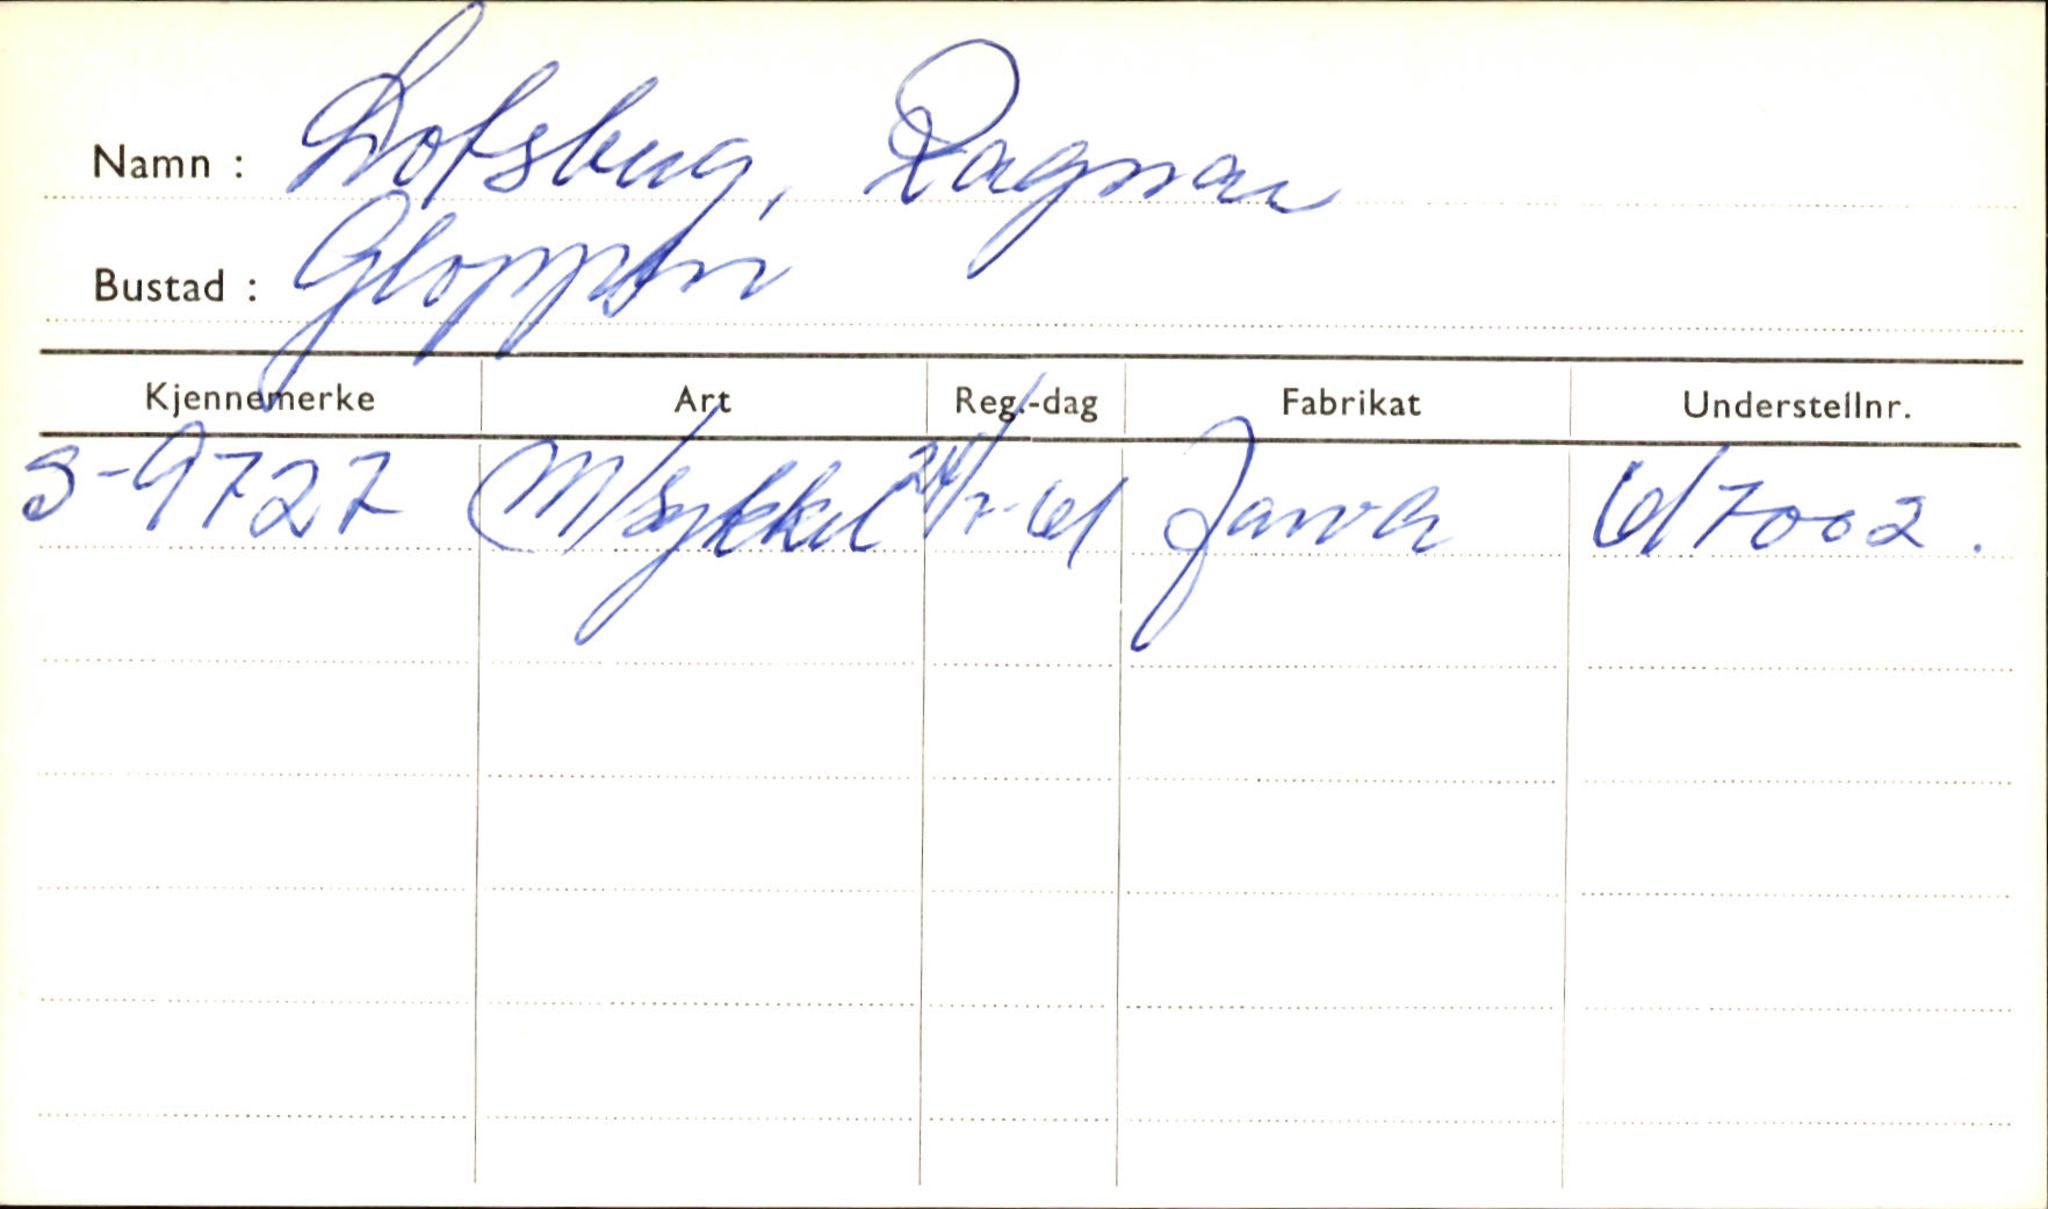 Namn : Lotsberg, Ragnar
Bustad : Gloppen
Kjennemerke Art Reg.-dag Fabrikat Understellnr.
S-9727 M/sykkel 24/7-61 Jawa 617002.